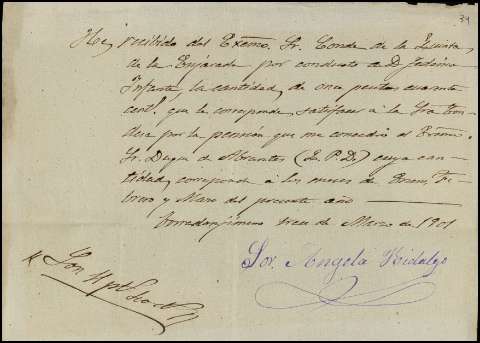 34
He recibido del Excmo. Sr. Conde de la Quinta
de la Enjarada por conducto de D. Federico
Infante, la cantidad, de once pesetas cuarenta
cent.s que le corresponde satisfacer á la Sra Con-
desa por la pensión que me concedió el Excmo.
Sr. Duque de Abrantes (E. P. D.) cuya can-
tidad, corresponde á los meses de Enero, Fe-
brero y Marzo del presente año
Torredonjimeno trece de Marzo de 1901
Sor. Angela Hidalgo
Son 11 pts